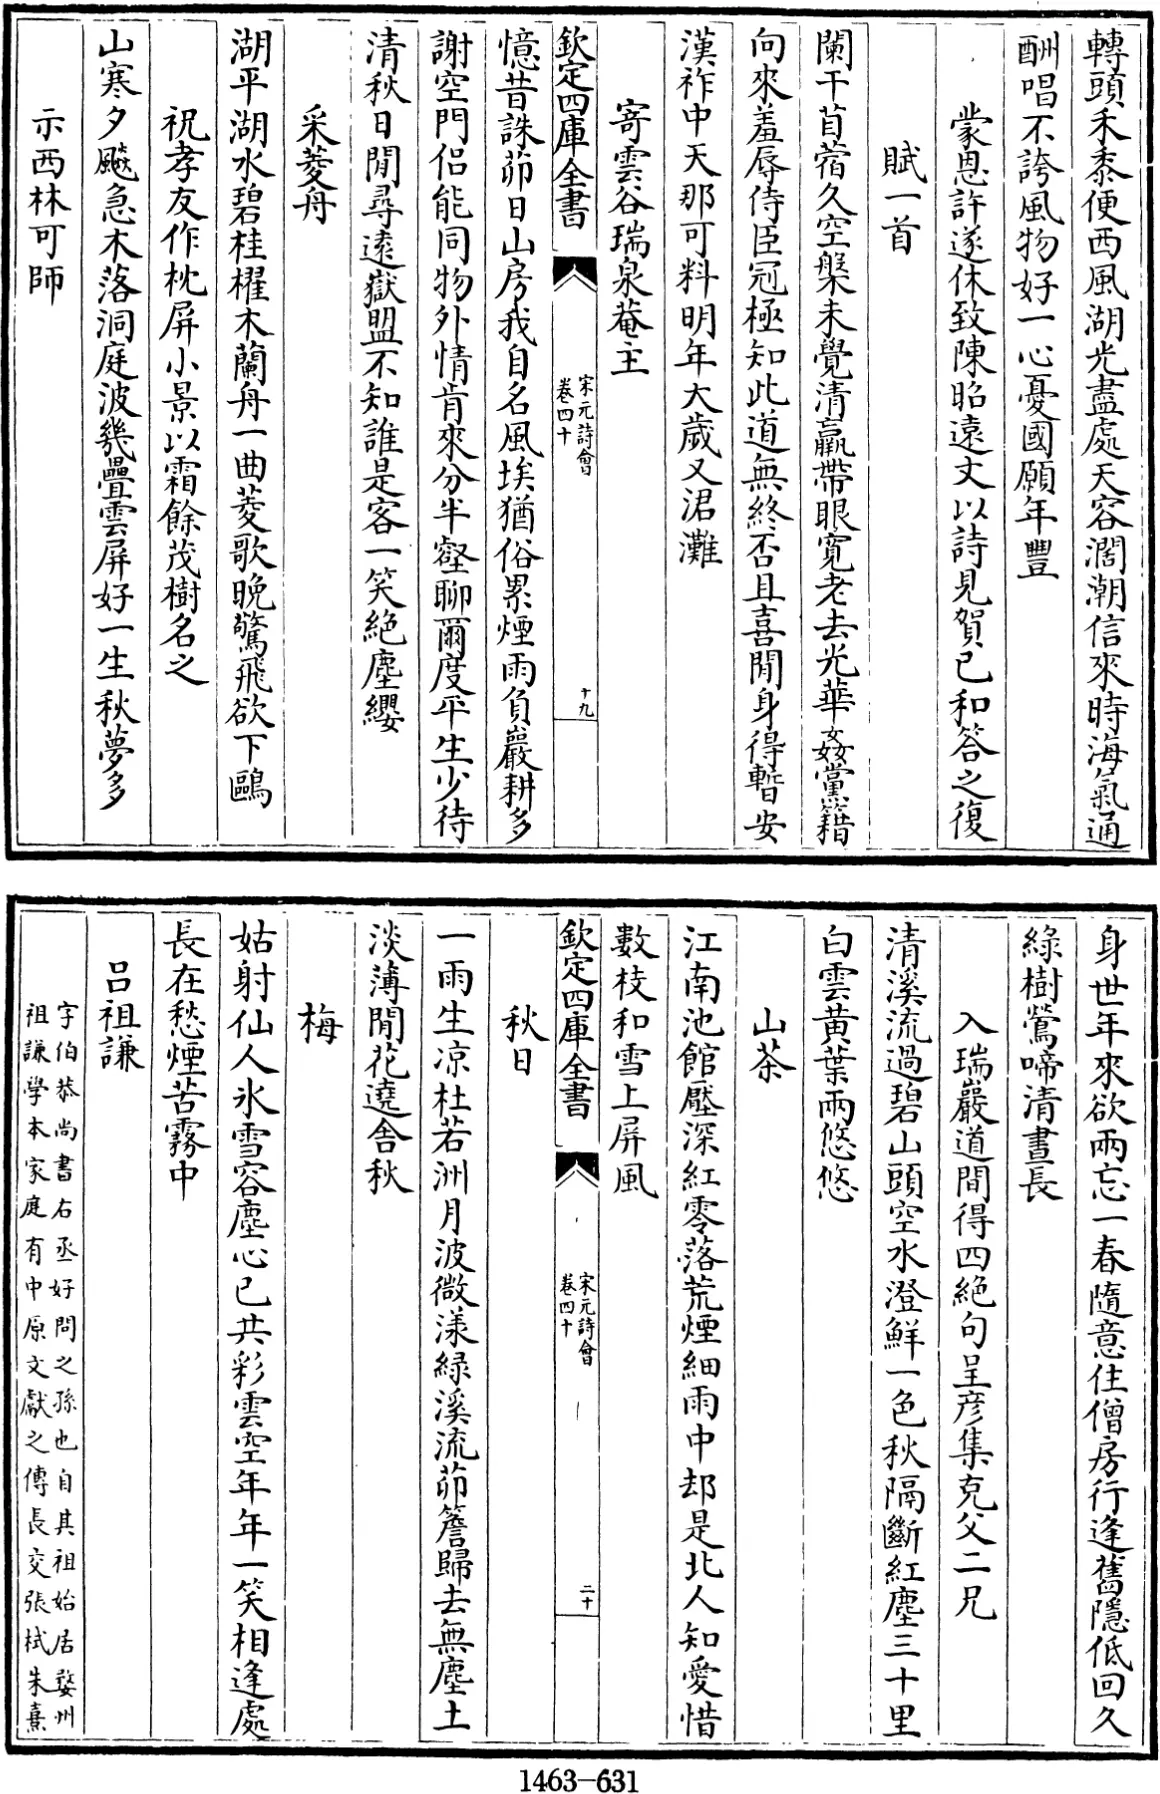 轉頭禾黍便西風湖光盡處天容濶潮信來時海氣通
酬唱不誇風物好一心憂國願年豐
蒙恩許遂休致陳昭遠丈以詩見賀已和答之復
賦一首
闌干苜蓿久空槃未覺清羸帶眼寛老去光華姦黨籍
向來羞辱侍臣冠極知此道無終否且喜閒身得暫安
漢祚中天那可料明年大歲又涒灘
寄雲谷瑞泉菴主
欽定四庫全書
宋元詩會
卷四十
十九
憶昔誅茆日山房我自名風埃猶俗累煙雨負巖耕多
謝空門侣能同物外情肯來分半壑聊爾度平生少待
清秋日閒尋遠嶽盟不知誰是客一笑絶塵纓
采菱舟
湖平湖水碧桂櫂木蘭舟一曲菱歌晚驚飛欲下鷗
祝孝友作枕屏小景以霜餘茂樹名之
山寒夕飈急木落洞庭波幾疊雲屏好一生秋夢多
示西林可師
身世年來欲兩忘一春隨意住僧房行逢舊隱低回久
綠樹鶯啼清晝長
入瑞巖道間得四絶句呈彦集克父二兄
清溪流過碧山頭空水澄鮮一色秋隔斷紅塵三十里
白雲黄葉兩悠悠
山茶
江南池館壓深紅零落荒煙細雨中却是北人知愛惜
數枝和雪上屏風
欽定四庫全書
宋元詩會
卷四十
二十
秋日
一雨生凉杜若洲月波微漾緑溪流茆簷歸去無塵土
淡薄閒花遶舍秋
梅
姑射仙人氷雪容塵心已共彩雲空年年一笑相逢處
長在愁煙苦霧中
吕祖謙
字伯恭尚書右丞好問之孫也自其祖始居婺州
祖謙學本家庭有中原文獻之傳長交張栻朱熹
1463-631